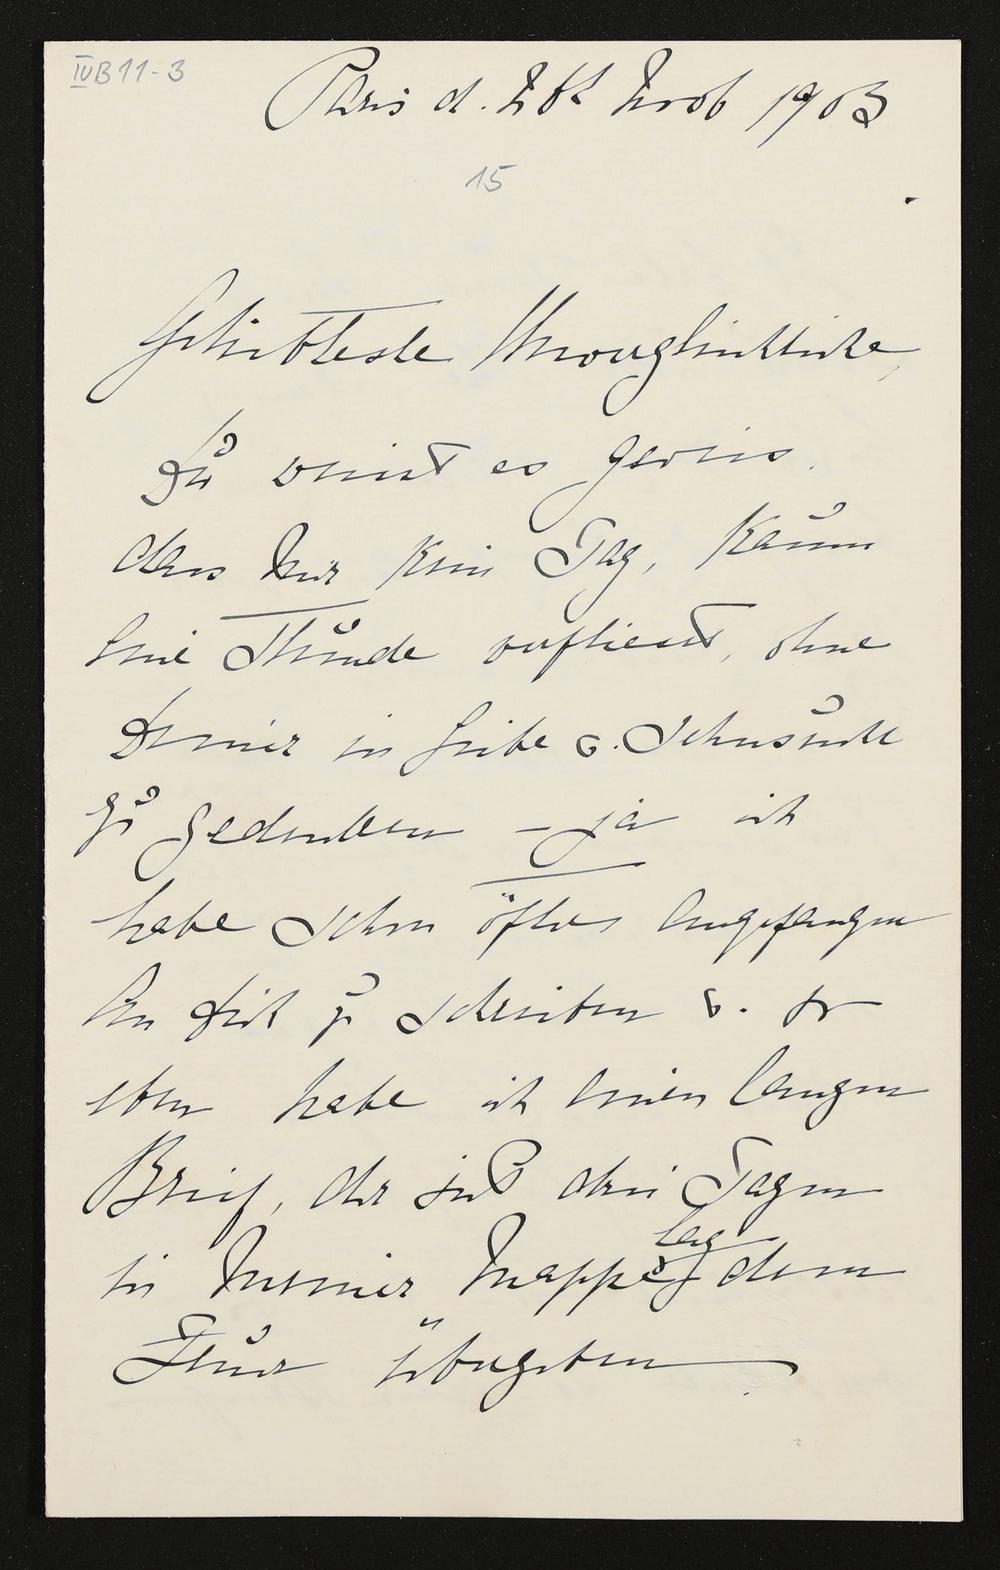 IV B 11-3
Paris d. 28t Novb 1903
15
Geliebteste Unvergleichliche,
Du weisst es gewiss,
dass mir kein Tag, kaum
eine Stunde verfliesst, ohne
Deiner in Liebe u. Sehnsucht
zu gedenken – ja ich
habe schon öfters angefangen
an Dich zu schreiben u. so
eben habe ich einen langen
Brief, der seit drei Tagen
in meiner Mappe lag dem
Feuer übergeben